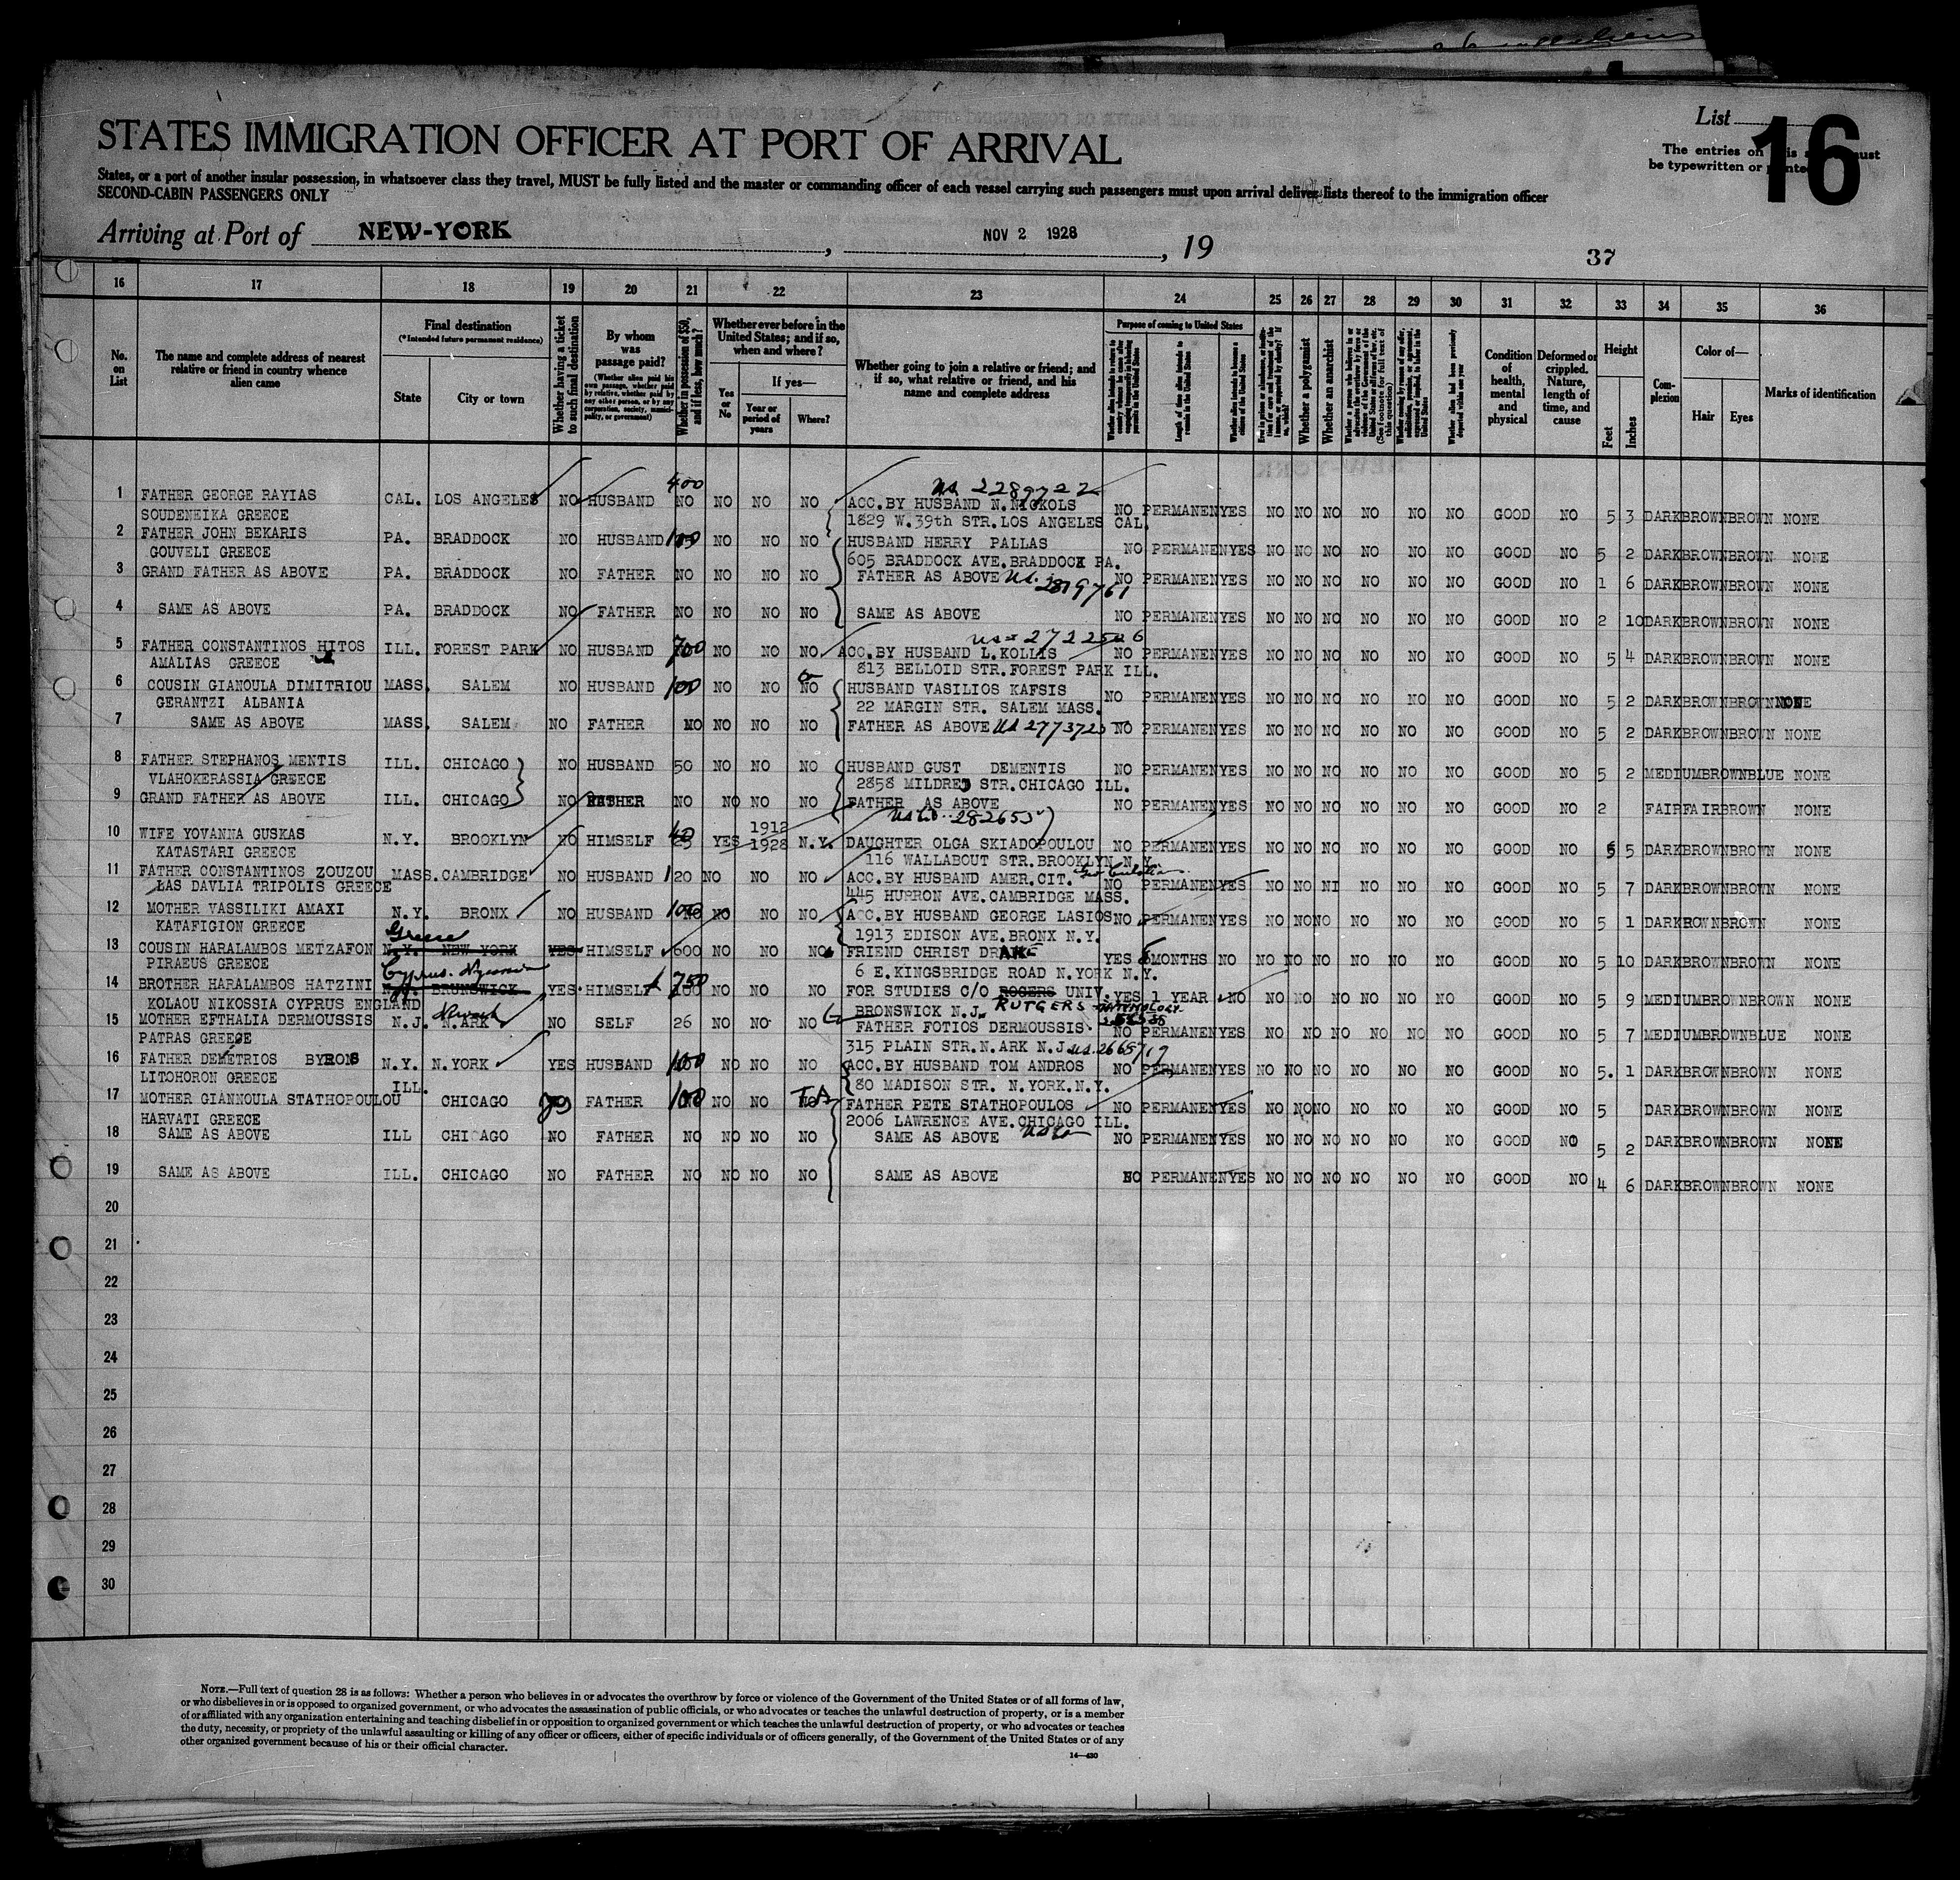 List
16
The entries on this must
be typewritten or printed
STATES IMMIGRATION OFFICER AT PORT OF ARRIVAL
States, or a port of another insular possession, in whatsoever class they travel, MUST be fully listed and the master or commanding officer of each vessel carrying such passengers must upon arrival deliver lists thereof to the immigration officer
SECOND-CABIN PASSENGERS ONLY
Arriving at Port of NEW-YORK, NOV 2 1928, 19
37
16 17 18 19 20 21 22 23 24 25 26 27 28 29 30 31 32 33 34 35 36
No. on List
The name and complete address of nearest relative or friend in country whence alien came
Final destination
(*Intended future permanent residence)
State
City or town
Whether having a ticket to such final destination
By whom was passage paid?
(Whether alien paid his own passage, whether paid by relative, whether paid by any other person, or by any corporation, society, municipality, or government)
Whether in possession of $50, and if less, how much?
Whether ever before in the United States; and if so, when and where?
Yes or No
If yes—
Year or period of years
Where?
Whether going to join a relative or friend; and if so, what relative or friend, and his name and complete address
Purpose of coming to United States
Length of time alien intends to remain in the United States
Whether alien intends to become a citizen of the United States
Whether a polygamist
Whether an anarchist
Condition of health, mental and physical
Deformed or crippled. Nature, length of time, and cause
Height
Feet
Inches
Complexion
Color of—
Hair
Eyes
Marks of identification
1 FATHER GEORGE RAYIAS CAL. LOS ANGELES NO HUSBAND 400 NO NO NO NO ACC.BY HUSBAND N.NICKOLS NO PERMANEN YES NO NO NO NO NO NO GOOD NO 5 3 DARK BROWN BROWN NONE
SOUDENEIKA GREECE 1829 W.39th STR.LOS ANGELES CAL.
2 FATHER JOHN BEKARIS PA. BRADDOCK NO HUSBAND NO NO NO HUSBAND HERRY PALLAS NO PERMANEN YES NO NO NO NO NO NO GOOD NO 5 2 DARK BROWN BROWN NONE
GOUVELI GREECE 605 BRADDOCK AVE.BRADDOCK PA.
3 GRAND FATHER AS ABOVE PA. BRADDOCK NO FATHER NO NO NO NO FATHER AS ABOVE NO PERMANEN YES NO NO NO NO NO NO GOOD NO 1 6 DARK BROWN BROWN NONE
4 SAME AS ABOVE PA. BRADDOCK NO FATHER NO NO NO NO SAME AS ABOVE NO PERMANEN YES NO NO NO NO NO NO GOOD NO 2 10 DARK BROWN BROWN NONE
5 FATHER CONSTANTINOS HITOS ILL. FOREST PARK NO HUSBAND 700 NO NO NO ACC.BY HUSBAND L.KOLLIS NO PERMANEN YES NO NO NO NO NO NO GOOD NO 5 4 DARK BROWN BROWN NONE
AMALIAS GREECE 813 BELLOID STR.FOREST PARK ILL.
6 COUSIN GIANOULA DIMITRIOU MASS. SALEM NO HUSBAND 100 NO NO NO HUSBAND VASILIOS KAFSIS NO PERMANEN YES NO NO NO NO NO NO GOOD NO 5 2 DARK BROWN BROWN NONE
GERANTZI ALBANIA 22 MARGIN STR. SALEM MASS.
7 SAME AS ABOVE MASS. SALEM NO FATHER NO NO NO NO FATHER AS ABOVE NO PERMANEN YES NO NO NO NO NO NO GOOD NO 5 2 DARK BROWN BROWN NONE
8 FATHER STEPHANOS MENTIS ILL. CHICAGO NO HUSBAND 50 NO NO NO HUSBAND GUST DEMENTIS NO PERMANEN YES NO NO NO NO NO NO GOOD NO 5 2 MEDIUM BROWN BLUE NONE
VLAHOKERASSIA GREECE 2858 MILDRED STR.CHICAGO ILL.
9 GRAND FATHER AS ABOVE ILL. CHICAGO NO FATHER NO NO NO NO FATHER AS ABOVE NO PERMANEN YES NO NO NO NO NO NO GOOD NO 2 FAIR FAIR BROWN NONE
10 WIFE YOVANNA GUSKAS N.Y. BROOKLYN NO HIMSELF YES 1912 1928 N.Y. DAUGHTER OLGA SKIADOPOULOU NO PERMANEN YES NO NO NO NO NO NO GOOD NO 5 5 DARK BROWN BROWN NONE
KATASTARI GREECE 116 WALLABOUT STR.BROOKLYN N.Y.
11 FATHER CONSTANTINOS ZOUZOU MASS. CAMBRIDGE NO HUSBAND 120 NO NO NO ACC.BY HUSBAND AMER.CIT. NO PERMANEN YES NO NO NI NO NO NO GOOD NO 5 7 DARK BROWN BROWN NONE
LAS DAVLIA TRIPOLIS GREECE 445 HURRON AVE.CAMBRIDGE MASS.
12 MOTHER VASSILIKI AMAXI N.Y. BRONX NO HUSBAND 100 NO NO NO ACC.BY HUSBAND GEORGE LASIOS NO PERMANEN YES NO NO NO NO NO NO GOOD NO 5 1 DARK BROWN BROWN NONE
KATAFIGION GREECE 1913 EDISON AVE.BRONX N.Y.
Greece
13 COUSIN HARALAMBOS METZAFON N.Y. NEW YORK YES HIMSELF 600 NO NO NO FRIEND CHRIST DRAKE YES 6 MONTHS NO NO NO NO NO NO NO GOOD NO 5 10 DARK BROWN BROWN NONE
PIRAEUS GREECE 6 E.KINGSBRIDGE ROAD N.YORK N.Y.
14 BROTHER HARALAMBOS HATZINI BRUNSWICK YES HIMSELF 750 NO NO NO FOR STUDIES C/O ROGERS UNIV. YES 1 YEAR NO NO NO NO NO NO NO GOOD NO 5 9 MEDIUM BROWN BROWN NONE
KOLAOU NIKOSSIA CYPRUS ENGLAND BRONSWICK N.J. RUTGERS
15 MOTHER EFTHALIA DERMOUSSIS N.J. N.ARK Newark NO SELF 26 NO NO NO FATHER FOTIOS DERMOUSSIS NO PERMANEN YES NO NO NO NO NO NO GOOD NO 5 7 MEDIUM BROWN BLUE NONE
PATRAS GREECE 315 PLAIN STR.N.ARK N.J.
16 FATHER DEMETRIOS BYRONS N.Y. N.YORK YES HUSBAND 100 NO NO NO ACC.BY HUSBAND TOM ANDROS NO PERMANEN YES NO NO NO NO NO NO GOOD NO 5. 1 DARK BROWN BROWN NONE
LITOHORON GREECE 80 MADISON STR. N.YORK.N.Y.
17 MOTHER GIANNOULA STATHOPOULOU ILL. CHICAGO FATHER 100 NO NO FATHER PETE STATHOPOULOS NO PERMANEN YES NO NO NO NO NO NO GOOD NO 5 DARK BROWN BROWN NONE
HARVATI GREECE 2006 LAWRENCE AVE.CHICAGO ILL.
18 SAME AS ABOVE ILL CHICAGO NO FATHER NO NO NO NO SAME AS ABOVE NO PERMANEN YES NO NO NO NO NO NO GOOD NO 5 2 DARK BROWN BROWN NONE
19 SAME AS ABOVE ILL. CHICAGO NO FATHER NO NO NO NO SAME AS ABOVE NO PERMANEN YES NO NO NO NO NO NO GOOD NO 4 6 DARK BROWN BROWN NONE
20
21
22
23
24
25
26
27
28
29
30
NOTE.—Full text of question 28 is as follows: Whether a person who believes in or advocates the overthrow by force or violence of the Government of the United States or of all forms of law,
or who disbelieves in or is opposed to organized government, or who advocates the assassination of public officials, or who advocates or teaches the unlawful destruction of property, or is a member
of or affiliated with any organization entertaining and teaching disbelief in or opposition to organized government or which teaches the unlawful destruction of property, or who advocates or teaches
the duty, necessity, or propriety of the unlawful assaulting or killing of any officer or officers, either of specific individuals or of officers generally, of the Government of the United States or of any
other organized government because of his or their official character.
14—430